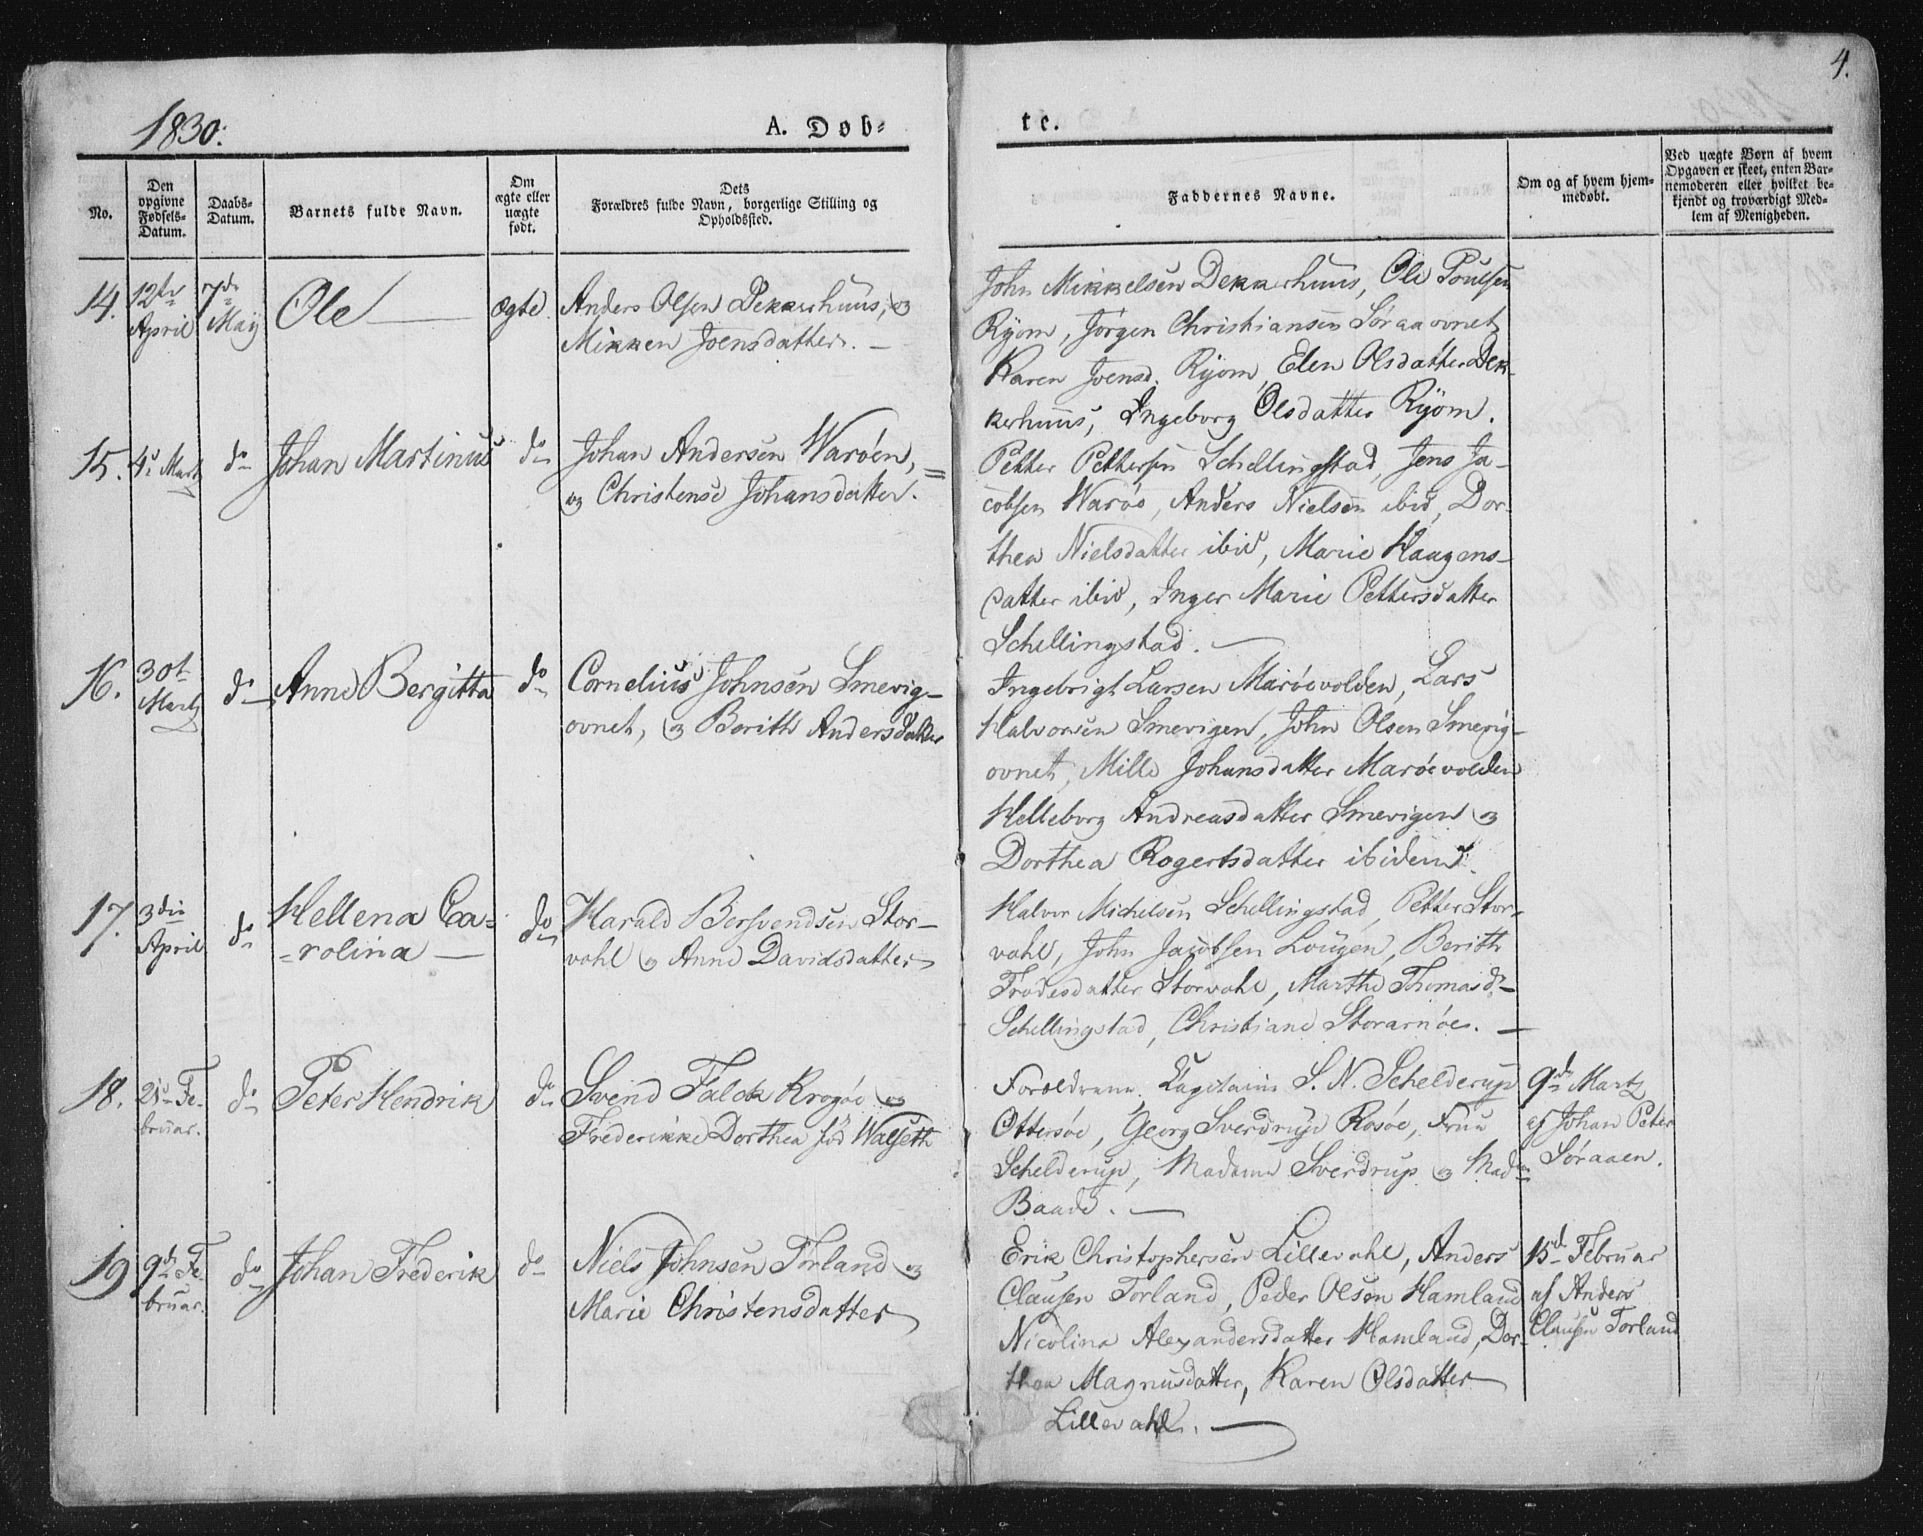 1830.
A. Døb-
te.
4.
No.
Den opgivne Fødsels-Datum.
Daabs-Datum.
Barnets fulde Navn.
Om ægte eller uægte født.
Dets Forældres fulde Navn, borgerlige Stilling og Opholdssted.
Faddernes Navne.
Om og af hvem hjem-medøbt.
Ved uægte Børn af hvem Opgaven er skeet, enten Bar-nemoderen eller hvilket be-kjendt og troværdigt Med-lem af Menigheden.
14.
12te
April
7de
Maij
Ole
ægte
Anders Olsen Dekkerhuus, og
Mikken Joensdatter. —
John Mikkelsen Dekkerhuus, Ole Poulsen
Ryom, Jørgen Christiansen Søraaovnet
Karen Joensd. Ryom, Elen Olsdatter Dek-
kerhuus, Ingeborg Olsdatter Ryom.
15.
4de Martz
do
Johan Martinus
do
Johan Andersen Warøen,
og Christense Johansdatter.
Petter Pettersen Schellingstad, Jens Ja-
cobsen Warøe, Anders Nielsen ibid, Dor-
thea Nielsdatter ibid, Marie Haagens-
datter ibid, Inger Marie Pettersdatter
Schellingstad. —
16.
30t
Martz
do
Anne Bergitta
do
Cornelius Johnsen Smevig-
ovnet, og Berith Andersdatter
Ingebrigt Larsen Marøevolden, Lars
Halvorsen Smevigen, John Olsen Smevig-
ovnet, Mille Johansdatter Marøevolden
Helleborg Andreasdatter Smevigen og
Dorthea Rogertsdatter ibidem.
17.
3die
April
do
Hellena Ca-
-rolina —
do
Harald Bersvendsen Stor-
vahl og Anne Davidsdatter
Halvor Michelsen Schellingstad, Petter Stor-
vahl, John Jacobsen Lougen, Berith
Frodesdatter Storvahl, Marthe Thomasd.
Schellingstad, Christiane Storarnøe. —
18.
21de Fe-
bruar.
do
Peter Hendrik
do
Svend Falck Krogøe og
Frederikke Dorthea fød Walseth
Forældrene, Capitain S. N. Schelderup
Ottersøe, Georg Sverdrup Rosøe, Fruu
Schelderup, Madame Sverdrup og Madme
Baade. —
9de Martz
af Johan Peter
Søraaen.
19
9de Fe-
bruar.
do
Johan Frederik
do
Niels Johnsen Forland og
Marie Christensdatter
Erik Christophersen Lillevahl, Anders
Clausen Forland, Peder Olsen Hamland
Nicolina Alexandersdatter Hamland, Dor-
thea Magnusdatter, Karen Olsdatter
Lillevahl. —
15d Februar
af Anders
Clausen Forland